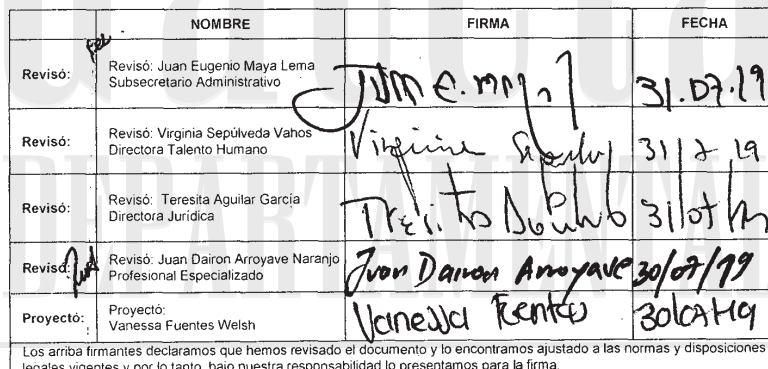 NOMBRE FIRMA FECHA
Revisó: Revisó: Juan Eugenio Maya Lema
Subsecretario Administrativo
Juan E. M 31.07.19
Revisó: Revisó: Virginia Sepúlveda Vahos
Directora Talento Humano
Virginia 31 7 19
Revisó: Revisó: Teresita Aguilar García
Directora Jurídica
31/07/
Revisó: Revisó: Juan Dairon Arroyave Naranjo
Profesional Especializado
Juan Dairon Arroyave 30/07/19
Proyectó: Proyectó:
Vanessa Fuentes Welsh
Vanessa Fuentes
Los arriba firmantes declaramos que hemos revisado el documento y lo encontramos ajustado a las normas y disposiciones
legales vigentes y por lo tanto, bajo nuestra responsabilidad lo presentamos para la firma.
DEPARTAMENTAL